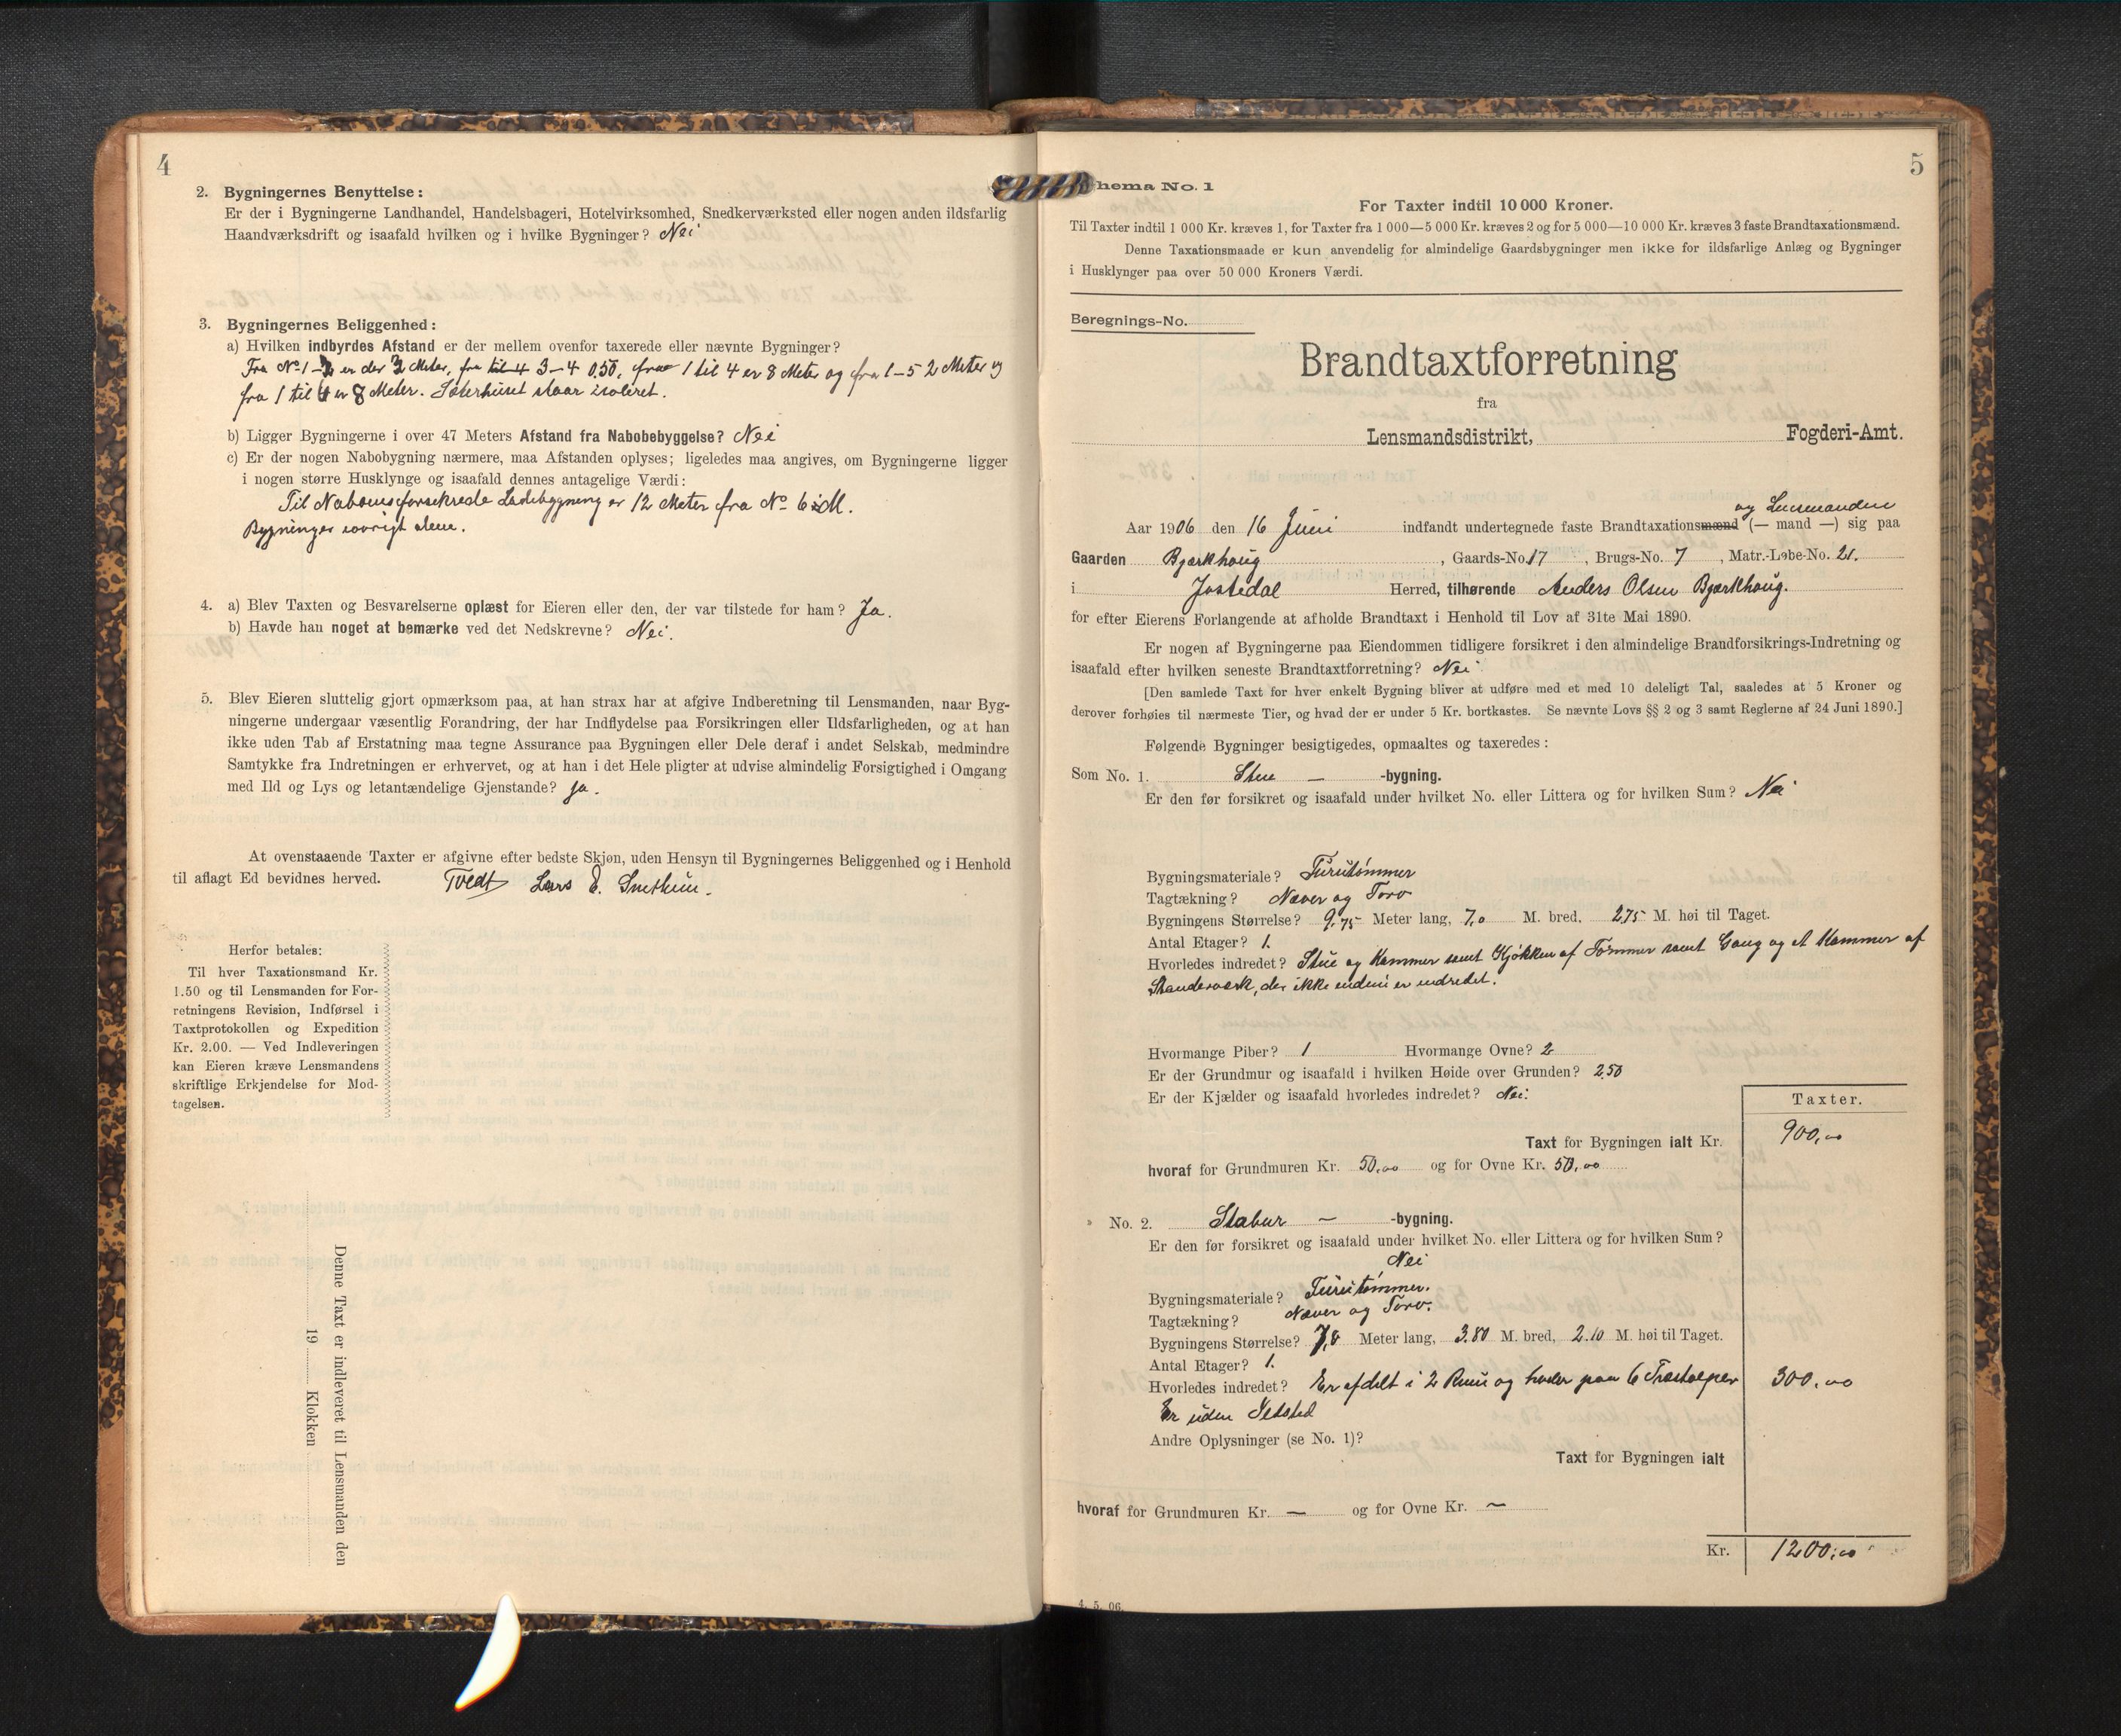 4
2. Bygningernes Benyttelse:
Er der i Bygningerne Landhandel, Handelsbageri, Hotelvirksomhed, Snedkerværksted eller nogen anden ildsfarlig
Haandværksdrift og isaafald hvilken og i hvilke Bygninger? Nei
3. Bygningernes Beliggenhed:
a) Hvilken indbyrdes Afstand er der mellem ovenfor taxerede eller nævnte Bygninger?
Fra No 1 – er der 3 Meter, fra til 4 3–4 0,50, fra 1 til 4 er 8 Meter og fra 1–5 2 Meter og
fra 1 til er 8 Meter. staar isoleret.
b) Ligger Bygningerne i over 47 Meters Afstand fra Nabobebyggelse? Nei
c) Er der nogen Nabobygning nærmere, maa Afstanden oplyses; ligeledes maa angives, om Bygningerne ligger
i nogen større Husklynge og isaafald dennes antagelige Værdi:
Til Naboens forsekrede Ladebygning er 12 Meter fra No 6
Bygninger iøvrigt alene.
4. a) Blev Taxten og Besvarelserne oplæst for Eieren eller den, der var tilstede for ham? Ja.
b) Havde han noget at bemærke ved det Nedskrevne? Nei.
5. Blev Eieren sluttelig gjort opmærksom paa, at han strax har at afgive Indberetning til Lensmanden, naar Byg-
ningerne undergaar væsentlig Forandring, der har Indflydelse paa Forsikringen eller Ildsfarligheden, og at han
ikke uden Tab af Erstatning maa tegne Assurance paa Bygningen eller Dele deraf i andet Selskab, medmindre
Samtykke fra Indretningen er erhvervet, og at han i det Hele pligter at udvise almindelig Forsigtighed i Omgang
med Ild og Lys og letantændelige Gjenstande? Ja.
At ovenstaaende Taxter er afgivne efter bedste Skjøn, uden Hensyn til Bygningernes Beliggenhed og i Henhold
til aflagt Ed bevidnes herved. Tvedt Lars E. Snethun.
Herfor betales:
Til hver Taxationsmand Kr.
1.50 og til Lensmanden for For-
retningens Revision, Indførsel i
Taxtprotokollen og Expedition
Kr. 2.00. — Ved Indleveringen
kan Eieren kræve Lensmandens
skriftlige Erkjendelse for Mod-
tagelsen.
Denne Taxt er indleveret til Lensmanden den
19 Klokken
5
hema No. 1
For Taxter indtil 10 000 Kroner.
Til Taxter indtil 1 000 Kr. kræves 1, for Taxter fra 1 000—5 000 Kr. kræves 2 og for 5 000—10 000 Kr. kræves 3 faste Brandtaxationsmænd.
Denne Taxationsmaade er kun anvendelig for almindelige Gaardsbygninger men ikke for ildsfarlige Anlæg og Bygninger
i Husklynger paa over 50 000 Kroners Værdi.
Beregnings-No.
Brandtaxtforretning
fra
Lensmandsdistrikt, Fogderi-Amt.
og Lensmanden
Aar 1906 den 16 Juni indfandt undertegnede faste Brandtaxationsmænd (— mand —) sig paa
Gaarden Bjørkhoug, Gaards-No. 17, Brugs-No. 7, Matr.-Løbe-No. 21.
i Jostedal Herred, tilhørende Anders Olsen Bjørkhoug.
for efter Eierens Forlangende at afholde Brandtaxt i Henhold til Lov af 31te Mai 1890.
Er nogen af Bygningerne paa Eiendommen tidligere forsikret i den almindelige Brandforsikrings-Indretning og
isaafald efter hvilken seneste Brandtaxtforretning? Nei
[Den samlede Taxt for hver enkelt Bygning bliver at udføre med et med 10 deleligt Tal, saaledes at 5 Kroner og
derover forhøies til nærmeste Tier, og hvad der er under 5 Kr. bortkastes. Se nævnte Lovs §§ 2 og 3 samt Reglerne af 24 Juni 1890.]
Følgende Bygninger besigtigedes, opmaaltes og taxeredes:
Som No. 1. Stue — -bygning.
Er den før forsikret og isaafald under hvilket No. eller Littera og for hvilken Sum? Nei
Bygningsmateriale? Furutømmer
Tagtækning? Næver og Torv
Bygningens Størrelse? 9,75 Meter lang, 7,0 M. bred, 2,75 M. høi til Taget.
Antal Etager? 1.
Hvorledes indredet? Stue og Kammer samt Kjøkken af Tømmer samt Gang og et Kammer af
Standerværk, der ikke endnu er indredet.
Hvormange Piber? 1 Hvormange Ovne? 2
Er der Grundmur og isaafald i hvilken Høide over Grunden? 2,50
Er der Kjælder og isaafald hvorledes indredet? Nei.
Taxter.
Taxt for Bygningen ialt Kr. 900,00
hvoraf for Grundmuren Kr. 50,00 og for Ovne Kr. 50,00
No. 2. Stabur — -bygning.
Er den før forsikret og isaafald under hvilket No. eller Littera og for hvilken Sum?
Nei
Bygningsmateriale? Furutømmer.
Tagtækning? Næver og Torv.
Bygningens Størrelse? 7,8 Meter lang, 3.80 M. bred, 2.10 M. høi til Taget.
Antal Etager? 1.
Hvorledes indredet? Er afdelt i 2 Rum og hviler paa 6 Træstolper 300,00
Er uden Ildsted
Andre Oplysninger (se No. 1)?
Taxt for Bygningen ialt
hvoraf for Grundmuren Kr. — og for Ovne Kr. —
Kr. 1200,00
4. 5. 06.